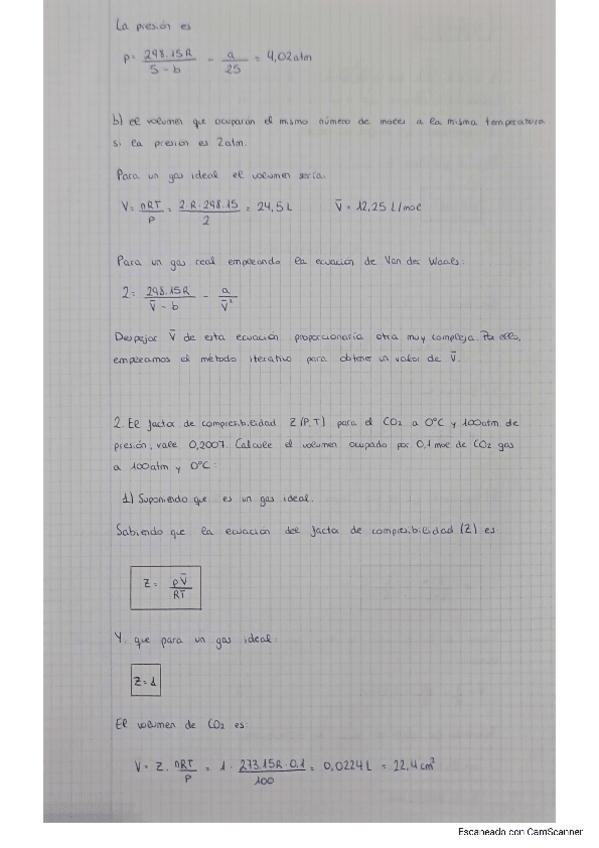 La presión es
P = 298.15R / 5 - b - a / 25 = 4,02 atm
b) el volumen que ocuparán el mismo número de moles a la misma temperatura
si la presión es 2 atm.
Para un gas ideal el volumen sería:
V = nRT / P = 2·R·298.15 / 2 = 24,5 L    V̄ = 12,25 L/mol
Para un gas real empleando la ecuación de Van der Waals:
2 = 298.15R / V̄ - b - a / V̄²
Despejar V̄ de esta ecuación proporcionaría otra muy compleja. Por ello,
empleamos el método iterativo para obtener un valor de V̄.
2. El factor de compresibilidad Z (P, T) para el CO₂ a 0°C y 100 atm de
presión, vale 0,2007. Calcule el volumen ocupado por 0,1 mol de CO₂ gas
a 100 atm y 0°C:
1) Suponiendo que es un gas ideal.
Sabiendo que la ecuación del factor de compresibilidad (Z) es
Z = pV̄ / RT
Y, que para un gas ideal:
Z = 1
El volumen de CO₂ es:
V = Z · nRT / P = 1 · 273.15R · 0,1 / 100 = 0,0224 L = 22,4 cm³
Escaneado con CamScanner